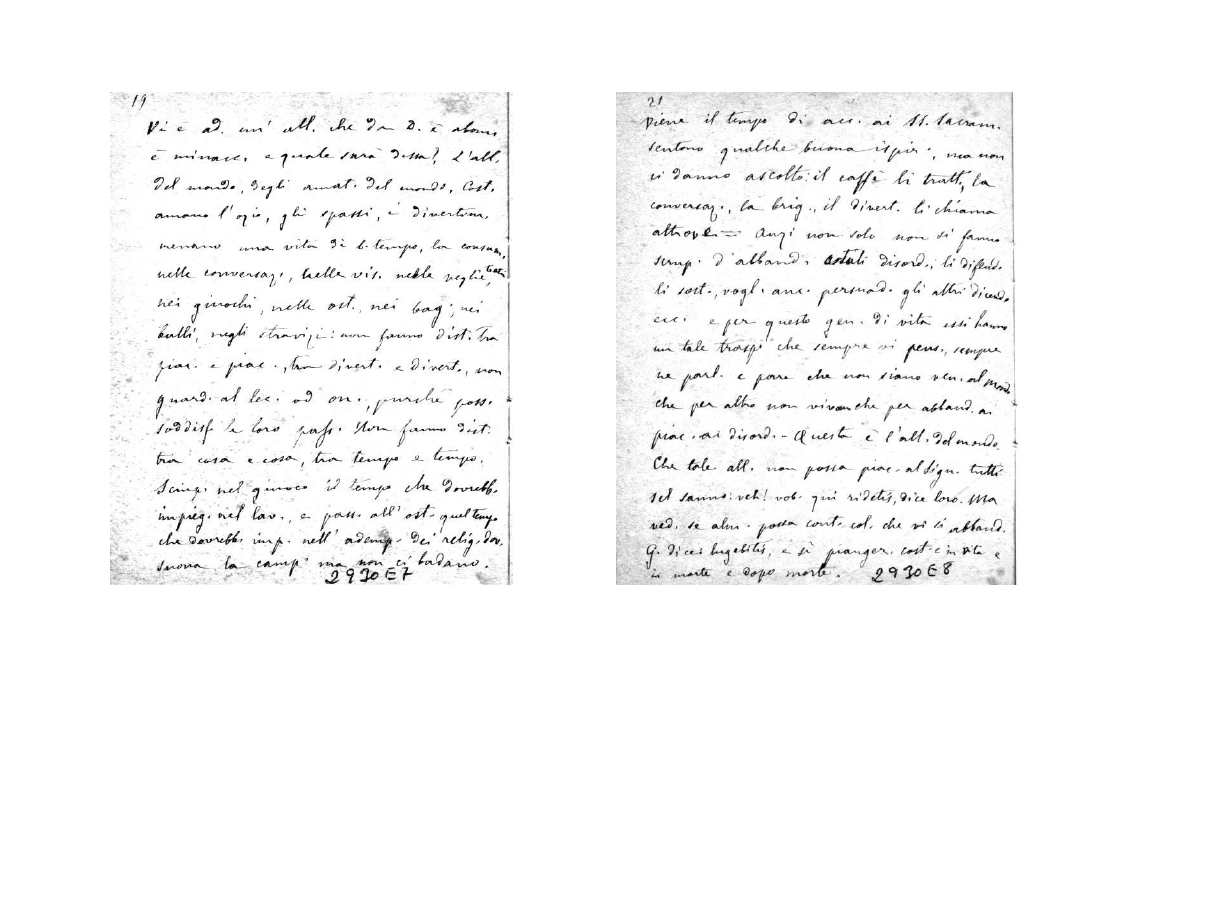 19
Vi è ad. un' all. che da D. è abom.
è minacc. e quale sarà dessa? L'all.
del mondo, degli amat. del mondo. Cost.
amano l'ozio, gli spassi, i divertim.
menano una vita di b. tempo, la consum.,
nelle conversaz., nelle vis. nelle veglie, teatri
nei giuochi, nelle ost., nei bag., nei
balli, negli stravizi: non fanno dist. tra
piac. e piac., tra divert. e divert., non
guard. al lec. od on., purchè poss.
soddisf. le loro pass. Non fanno dist.
tra cosa e cosa, tra tempo e tempo.
Sciup. nel giuoco il tempo che dovrebb.
impieg. nel lav., e pass. all' ost. quel tempo
che dovrebb. imp. nell' ademp. dei relig. dov.
suona la camp. ma non ci badano.
2930 E7
21
Viene il tempo di acc. ai SS. Sacram.
sentono qualche buona ispir., ma non
ci danno ascolto: il caffè li tratt., la
conversaz., la brig., il divert. li chiama
altrove = Anzi non solo non si fanno
scrup. d'abband. disord., li difend.
li sost., vogl. anc. persuad. gli altri dicendo
ecc. e per questo gen. di vita essi hanno
un tale trasp. che sempre vi pens., sempre
ne parl. e pare che non siano ven. al mondo
che per altro non vivan che per abband. ai
piac. ai disord. - Questa è l'all. del mondo.
Che tale all. non possa piac. al Sign. tutti
sel sanno: veh! vob. qui ridetis, dice loro. Ma
ved. se alm. possa cont. col. che vi si abband.
G. dice: lugebitis, e sì pianger. cost. e in vita e
in morte e dopo morte.
2930 E8